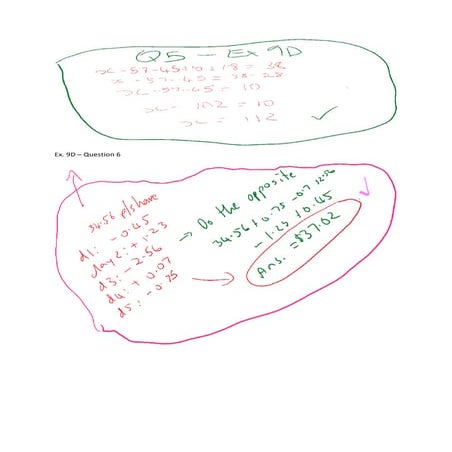 Q5 - Ex 9D
x - 57 - 45 + 0 + 18 = 38
x - 57 - 45 = 38 - 28
x - 57 - 45 = 10
x - 102 = 10
x = 112
Ex. 9D – Question 6
34.56 p/share
d1: - 0.45
day2: + 1.23
d3: - 2.56
d4: + 0.07
d5: - 0.75
→ Do the opposite
34.56 + 0.75 - 0.7
- 1.23 + 0.45
Ans. = $37.02